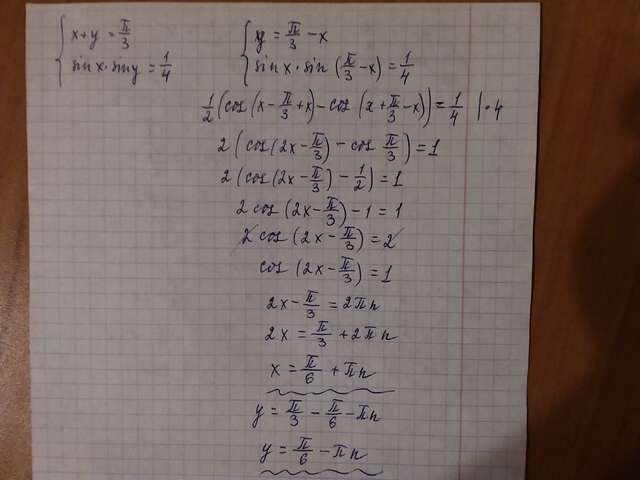 { x+y = π/3
sin x · sin y = 1/4
{ y = π/3 − x
sin x · sin (π/3 − x) = 1/4
1/2 (cos (x − π/3 + x) − cos (x + π/3 − x)) = 1/4 | · 4
2 (cos (2x − π/3) − cos π/3) = 1
2 (cos (2x − π/3) − 1/2) = 1
2 cos (2x − π/3) − 1 = 1
2 cos (2x − π/3) = 2
cos (2x − π/3) = 1
2x − π/3 = 2πn
2x = π/3 + 2πn
x = π/6 + πn
y = π/3 − π/6 − πn
y = π/6 − πn